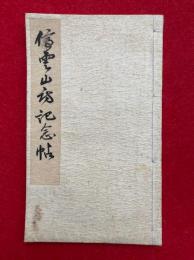 雲山房記念帖